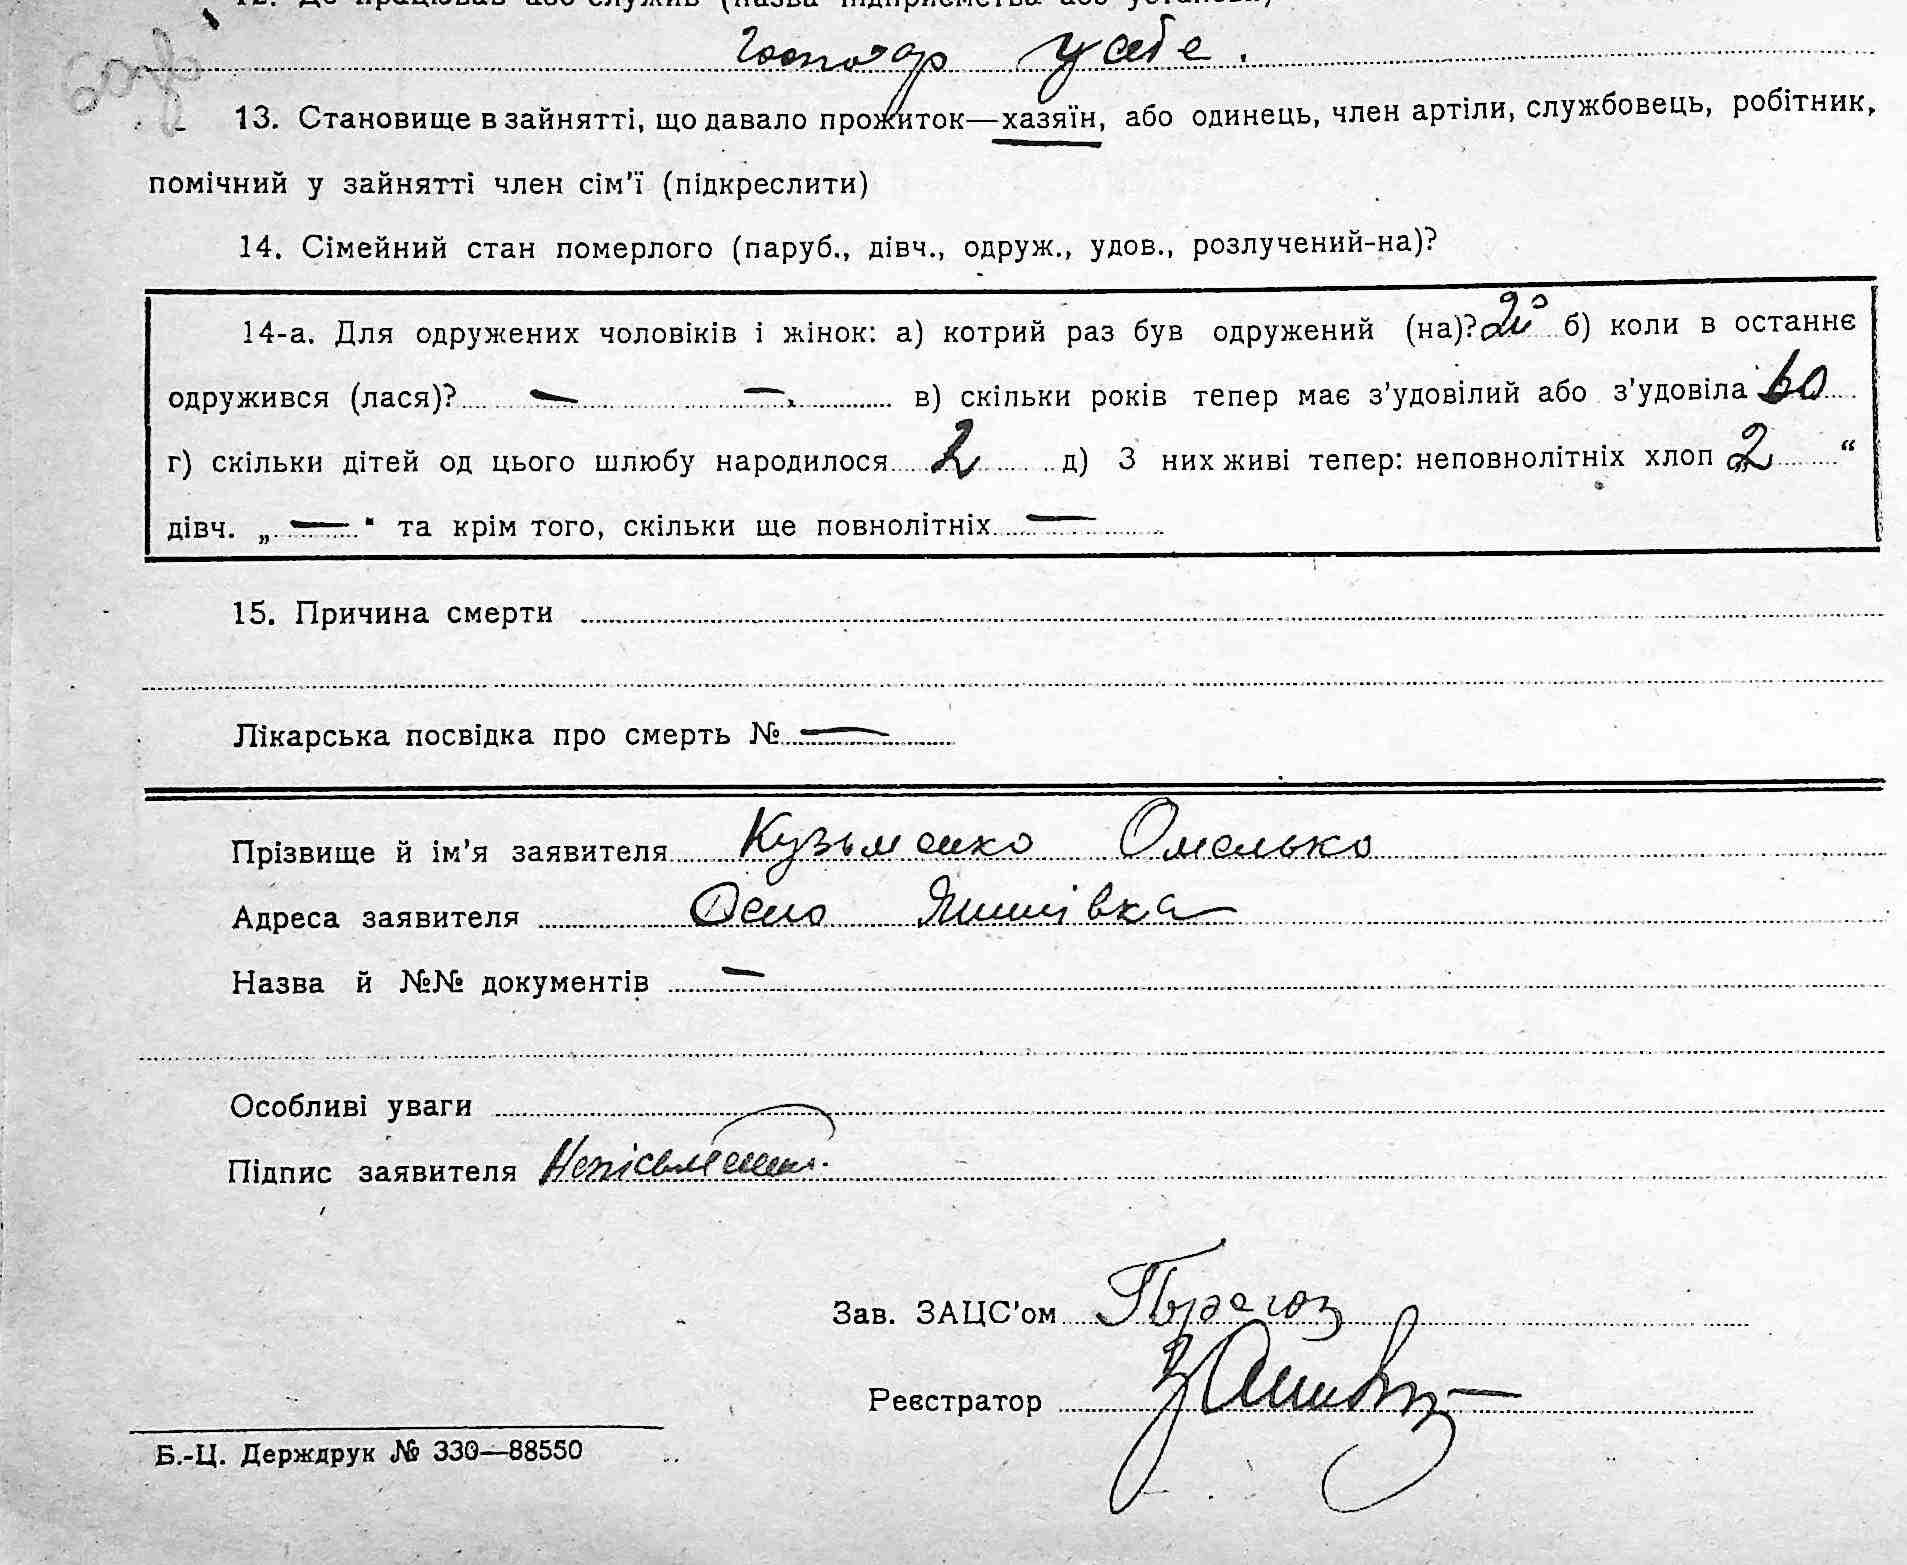 12. Де працював або служив (назва підприємства або установи)
господар у себе.
13. Становище в зайнятті, що давало прожиток—хазяїн, або одинець, член артіли, службовець, робітник,
помічний у зайнятті член сім'ї (підкреслити)
14. Сімейний стан померлого (паруб., дівч., одруж., удов., розлучений-на)?
14-а. Для одружених чоловіків і жінок: а) котрий раз був одружений (на)? 2й б) коли в останнє
одружився (лася)? — — в) скільки років тепер має з'удовілий або з'удовіла 60
г) скільки дітей од цього шлюбу народилося 2 д) З них живі тепер: неповнолітніх хлоп „2“
дівч. „—“ та крім того, скільки ще повнолітніх —
15. Причина смерти
Лікарська посвідка про смерть № —
Прізвище й ім'я заявителя Кузьменко Омелько
Адреса заявителя Село Яншівка
Назва й №№ документів —
Особливі уваги
Підпис заявителя Неписьмен.
Зав. ЗАЦС'ом
Реєстратор
Б.-Ц. Держдрук № 330—88550